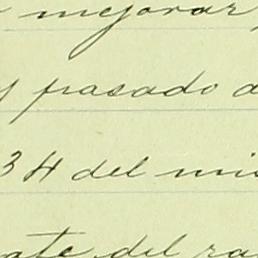 mejorar
y pasado a
34 del mi
ate del ra